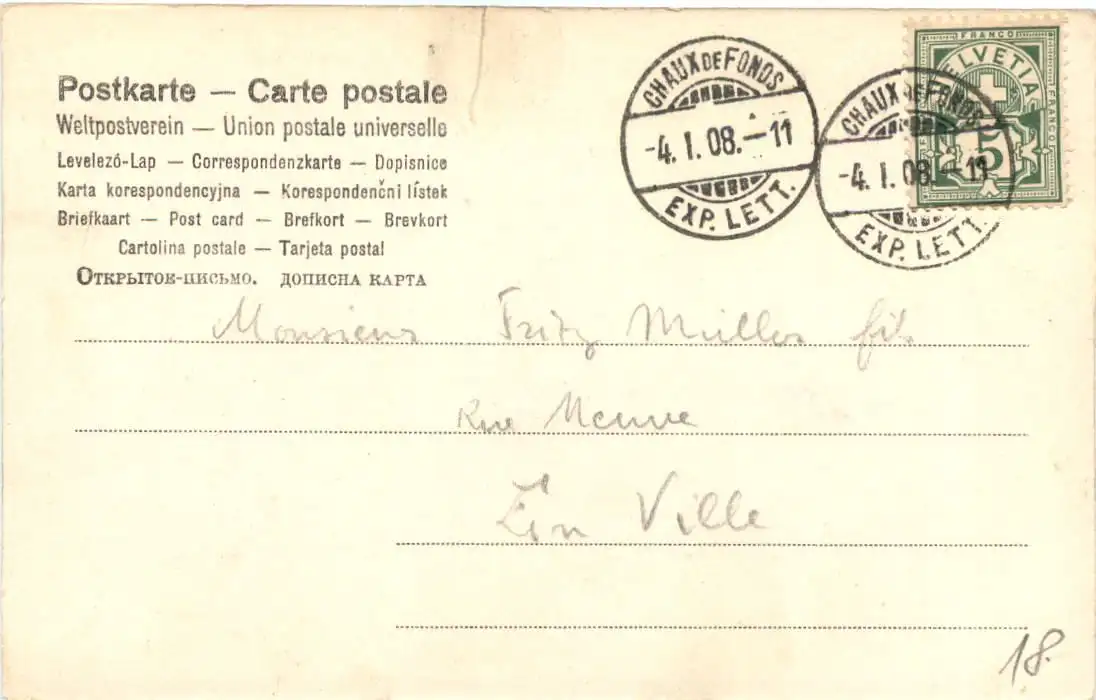 Postkarte — Carte postale
Weltpostverein — Union postale universelle
Levelezó-Lap — Correspondenzkarte — Dopisnice
Karta korespondencyjna — Korespondenčni lístek
Briefkaart — Post card — Brefkort — Brevkort
Cartolina postale — Tarjeta postal
Открытое-письмо. дописна карта
CHAUX DE FONDS
-4. I. 08. — 11
EXP. LETT.
CHAUX DE FONDS
-4. I. 08. — 11
EXP. LETT.
FRANCO
HELVETIA
FRANCO
5
Monsieur Fritz Muller fils
Rue Neuve
En Ville
18.